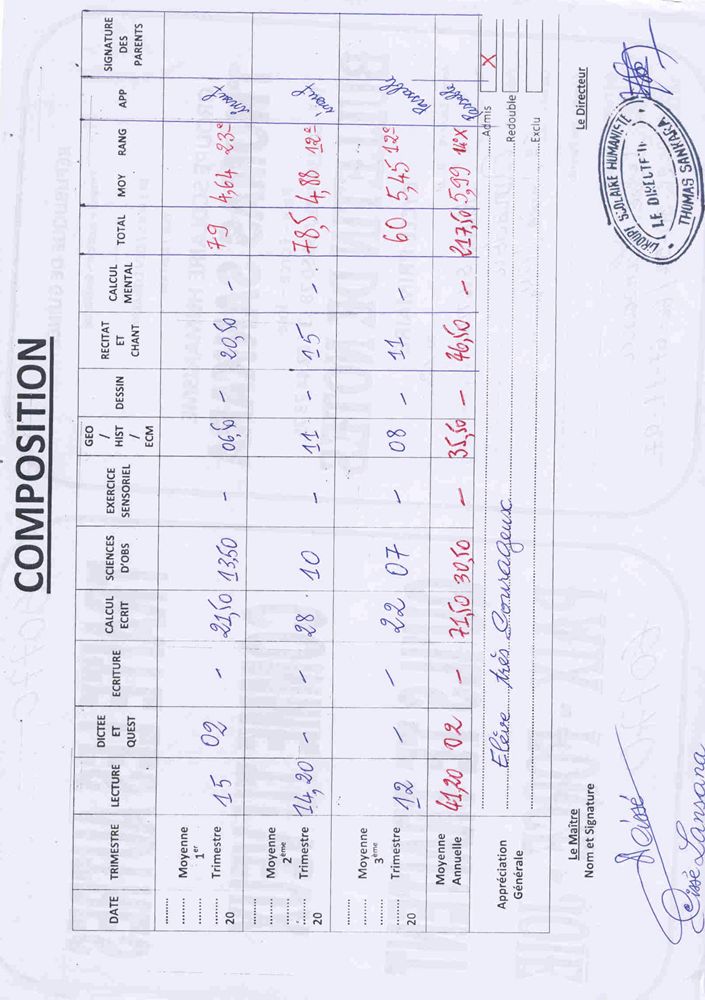 COMPOSITION
DATE TRIMESTRE LECTURE DICTEE ET QUEST ECRITURE CALCUL ECRIT SCIENCES D'OBS EXERCICE SENSORIEL GEO / HIST / ECM DESSIN RECITAT ET CHANT CALCUL MENTAL TOTAL MOY RANG APP SIGNATURE DES PARENTS
.......... .......... .......... 20 Moyenne 1er Trimestre 15 02 - 21,50 13,50 - 06,50 - 20,50 - 79 4,64 23e insuf
.......... .......... .......... 20 Moyenne 2ème Trimestre 14,20 - - 28 10 - 11 - 15 - 78,5 4,88 12e insuf
.......... .......... .......... 20 Moyenne 3ème Trimestre 12 - - 22 07 - 08 - 11 - 60 5,45 12e Passable
Moyenne Annuelle 41,20 02 - 71,50 30,50 - 35,50 - 46,50 - 217,50 5,99 14e X Passable
Appréciation Générale
Elève très Courageux
Admis X
Redouble
Exclu
Le Maître
Nom et Signature
Cissé
Cissé Lansana
Le Directeur
GROUPE SCOLAIRE HUMANISTE
LE DIRECTEUR
THOMAS SANKARA